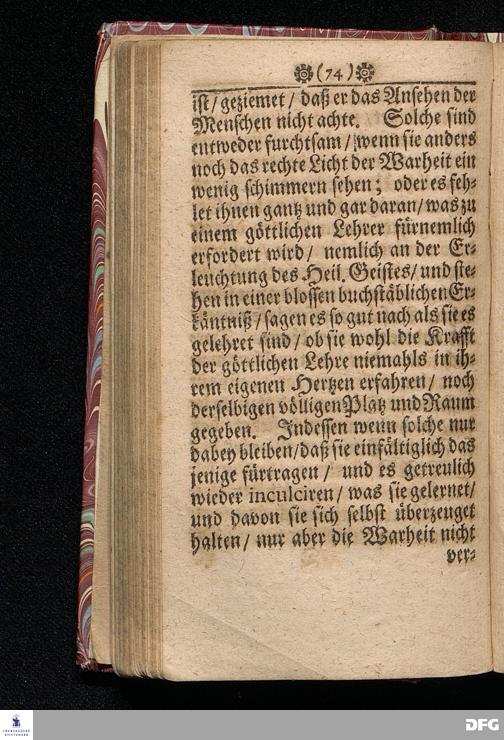 (74)
ist/ geziemet/ daß er das Ansehen der
Menschen nicht achte. Solche sind
entweder furchtsam/ wenn sie anders
noch das rechte Licht der Warheit ein
wenig schimmern sehen; oder es feh-
let ihnen gantz und gar daran/ was zu
einem göttlichen Lehrer fürnemlich
erfordert wird/ nemlich an der Er-
leuchtung des Heil. Geistes/ und ste-
hen in einer blossen buchstäblichen Er-
käntniß/ sagen es so gut nach als sie es
gelehret sind/ ob sie wohl die Krafft
der göttlichen Lehre niemahls in ih-
rem eigenen Hertzen erfahren/ noch
derselbigen völligen Platz und Raum
gegeben. Indessen wenn solche nur
dabey bleiben/ daß sie einfältiglich das
jenige fürtragen/ und es getreulich
wieder inculciren/ was sie gelernet/
und davon sie sich selbst überzeuget
halten/ nur aber die Warheit nicht
ver-
FRANCKESCHE
STIFTUNGEN
DFG